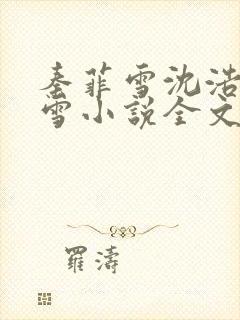 秦菲雪沈浩
雪小说全文
罗涛